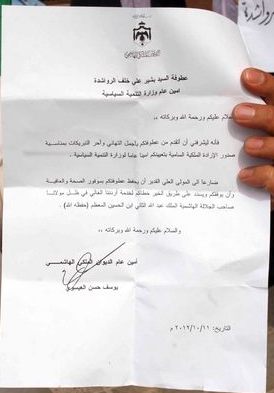 عطوفة السيد بشير علي خلف الرواشدة
امين عام وزارة التنمية السياسية
السلام عليكم ورحمة الله وبركاته ،،
فأنه ليشرفني أن أتقدم من عطوفتكم بأجمل التهاني وأحر التبريكات بمناسبة
صدور الإرادة الملكية السامية بتعيينكم أميناً عاماً لوزارة التنمية السياسية .
ضارعا الى المولى العلي القدير أن يحفظ عطوفتكم بموفور الصحة والعافية
وأن يوفقكم ويسدد على طريق الخير خطاكم لخدمة أردننا الغالي في ظل مولانا
صاحب الجلالة الهاشمية الملك عبد الله الثاني ابن الحسين المعظم (حفظه الله) .
والسلام عليكم ورحمة الله وبركاته ،،
أمين عام الديوان الملكي الهاشمي
يوسف حسن العيسوي
التاريخ: ٢٠١٢/١٠/١١ م